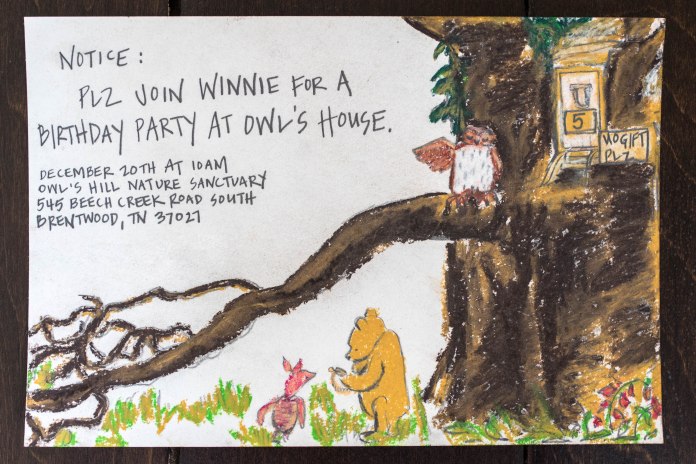 NOTICE:
PLZ JOIN WINNIE FOR A
BIRTHDAY PARTY AT OWL'S HOUSE.
DECEMBER 20TH AT 10AM
OWL'S HILL NATURE SANCTUARY
545 BEECH CREEK ROAD SOUTH
BRENTWOOD, TN 37027
5
NO GIFT
PLZ